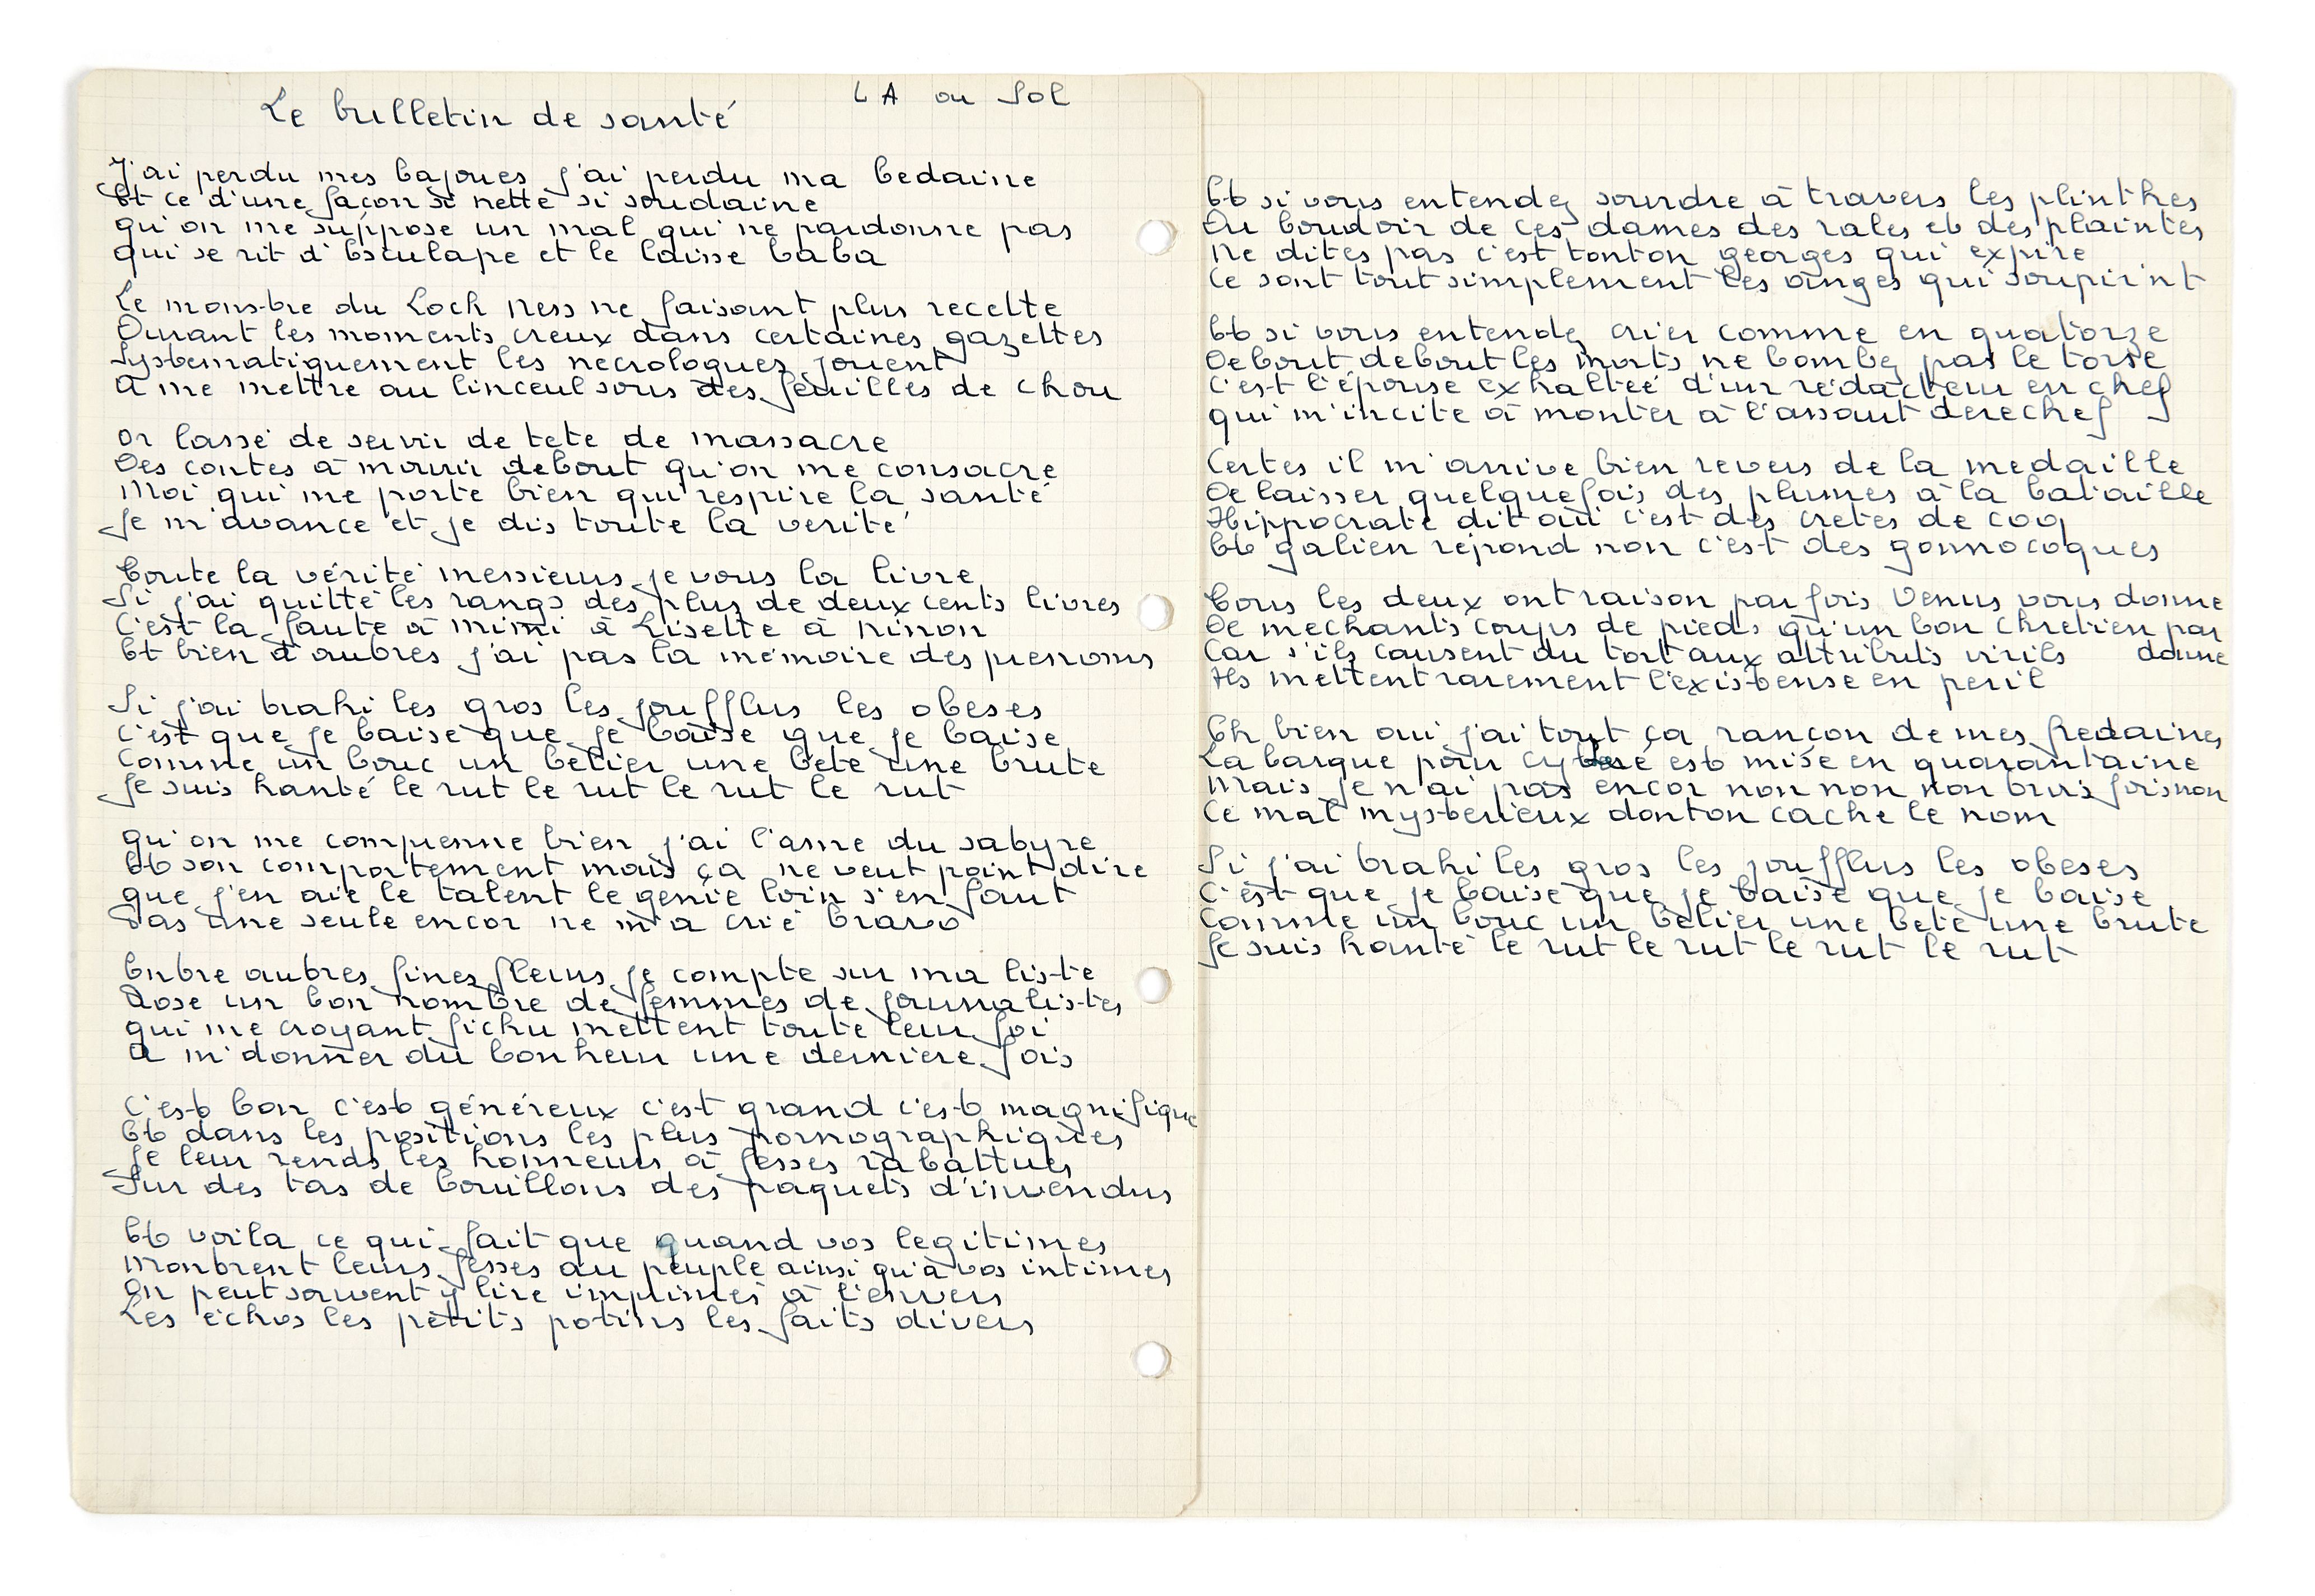 Le bulletin de santé
LA ou Sol
J'ai perdu mes bajoues j'ai perdu ma bedaine
Et ce d'une façon si nette si soudaine
qu'on me suppose un mal qui ne pardonne pas
qui se rit d'Esculape et le laisse baba
Le monstre du Loch Ness ne faisant plus recette
Durant les moments creux dans certaines gazettes
Systematiquement les necrologues jouent
A me mettre au linceul sous des feuilles de chou
Or lassé de servir de tete de massacre
Des contes à mourir debout qu'on me consacre
Moi qui me porte bien qui respire la santé
Je m'avance et je dis toute la verité
Toute la vérité messieurs je vous la livre
Si j'ai quitté les rangs des plus de deux cents livres
C'est la faute à mimi à Lisette à ninon
Et bien d'autres j'ai pas la mémoire des prenoms
Si j'ai trahi les gros les joufflus les obeses
c'est que je baise que je baise que je baise
Comme un bouc un belier une bete une brute
Je suis hanté le rut le rut le rut le rut
qu'on me comprenne bien j'ai l'ame du satyre
Et son comportement mais ça ne veut point dire
que j'en aie le talent le genie loin s'en faut
Pas une seule encor ne m'a crié bravo
Entre autres fines fleurs je compte sur ma liste
Rose un bon nombre de femmes de journalistes
qui me croyant fichu mettent toute leur foi
A m'donner du bonheur une derniere fois
C'est bon c'est généreux c'est grand c'est magnifique
Et dans les positions les plus pornographiques
Je leur rends les honneurs à fesses rabattues
Sur des tas de bouillons des paquets d'invendus
Et voila ce qui fait que quand vos legitimes
Montrent leurs fesses au peuple ainsi qu'à vos intimes
On peut souvent y lire imprimés à l'envers
Les échos les petits potins les faits divers
Et si vous entendez sourdre à travers les plinthes
Du boudoir de ces dames des rales et des plaintes
Ne dites pas c'est tonton georges qui expire
Ce sont tout simplement les anges qui soupir'nt
Et si vous entendez crier comme en quatorze
Debout debout les morts ne bombez pas le torse
C'est l'épouse exhaltée d'un rédacteur en chef
qui m'incite à monter à l'assaut derechef
Certes il m'arrive bien revers de la medaille
De laisser quelquefois des plumes à la bataille
Hippocrate dit oui c'est des cretes de coq
Et galien répond non c'est des gonnocoques
Tous les deux ont raison parfois Venus vous donne
De mechants coups de pieds qu'un bon chretien pardonne
Car s'ils causent du tort aux attributs virils
Ils mettent rarement l'existense en peril
Eh bien oui j'ai tout ça rançon de mes fredaines
La barque pour cythere est mise en quarantaine
Mais je n'ai pas encor non non non trois fois non
Ce mal mysterieux dont on cache le nom
Si j'ai trahi les gros les joufflus les obeses
C'est que je baise que je baise que je baise
Comme un bouc un belier une bete une brute
Je suis hanté le rut le rut le rut le rut